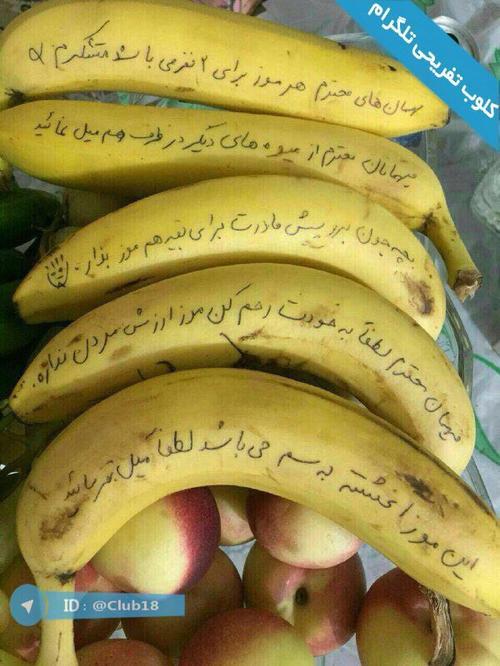 کلوب تفریحی تلگرام
مهمان های محترم هر موز برای ۲ نفر می باشد متشکرم
میهمانان محترم از میوه های دیگر در ظرف هم میل نمائید
بچه جون برو پیش مادرت برای بقیه هم موز بذار.
میهمان محترم لطفاً به خودت رحم کن موز ارزش مردن نداره.
این موز آغشته به سم می باشد لطفاً میل نفرمائید
ID : @Club18